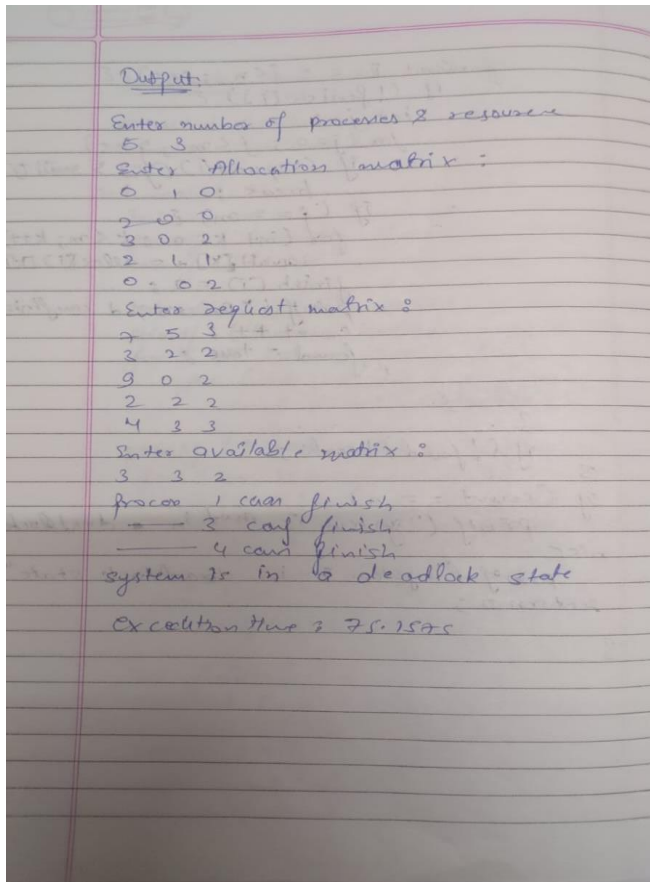 Output:
Enter number of processes & resource
5 3
Enter Allocation matrix :
0 1 0
2 0 0
3 0 2
2 1 1
0 0 2
Enter request matrix :
7 5 3
3 2 2
9 0 2
2 2 2
4 3 3
Enter available matrix :
3 3 2
Proces 1 can finish
—— 3 can finish
—— 4 can finish
system is in a deadlock state
execution time :